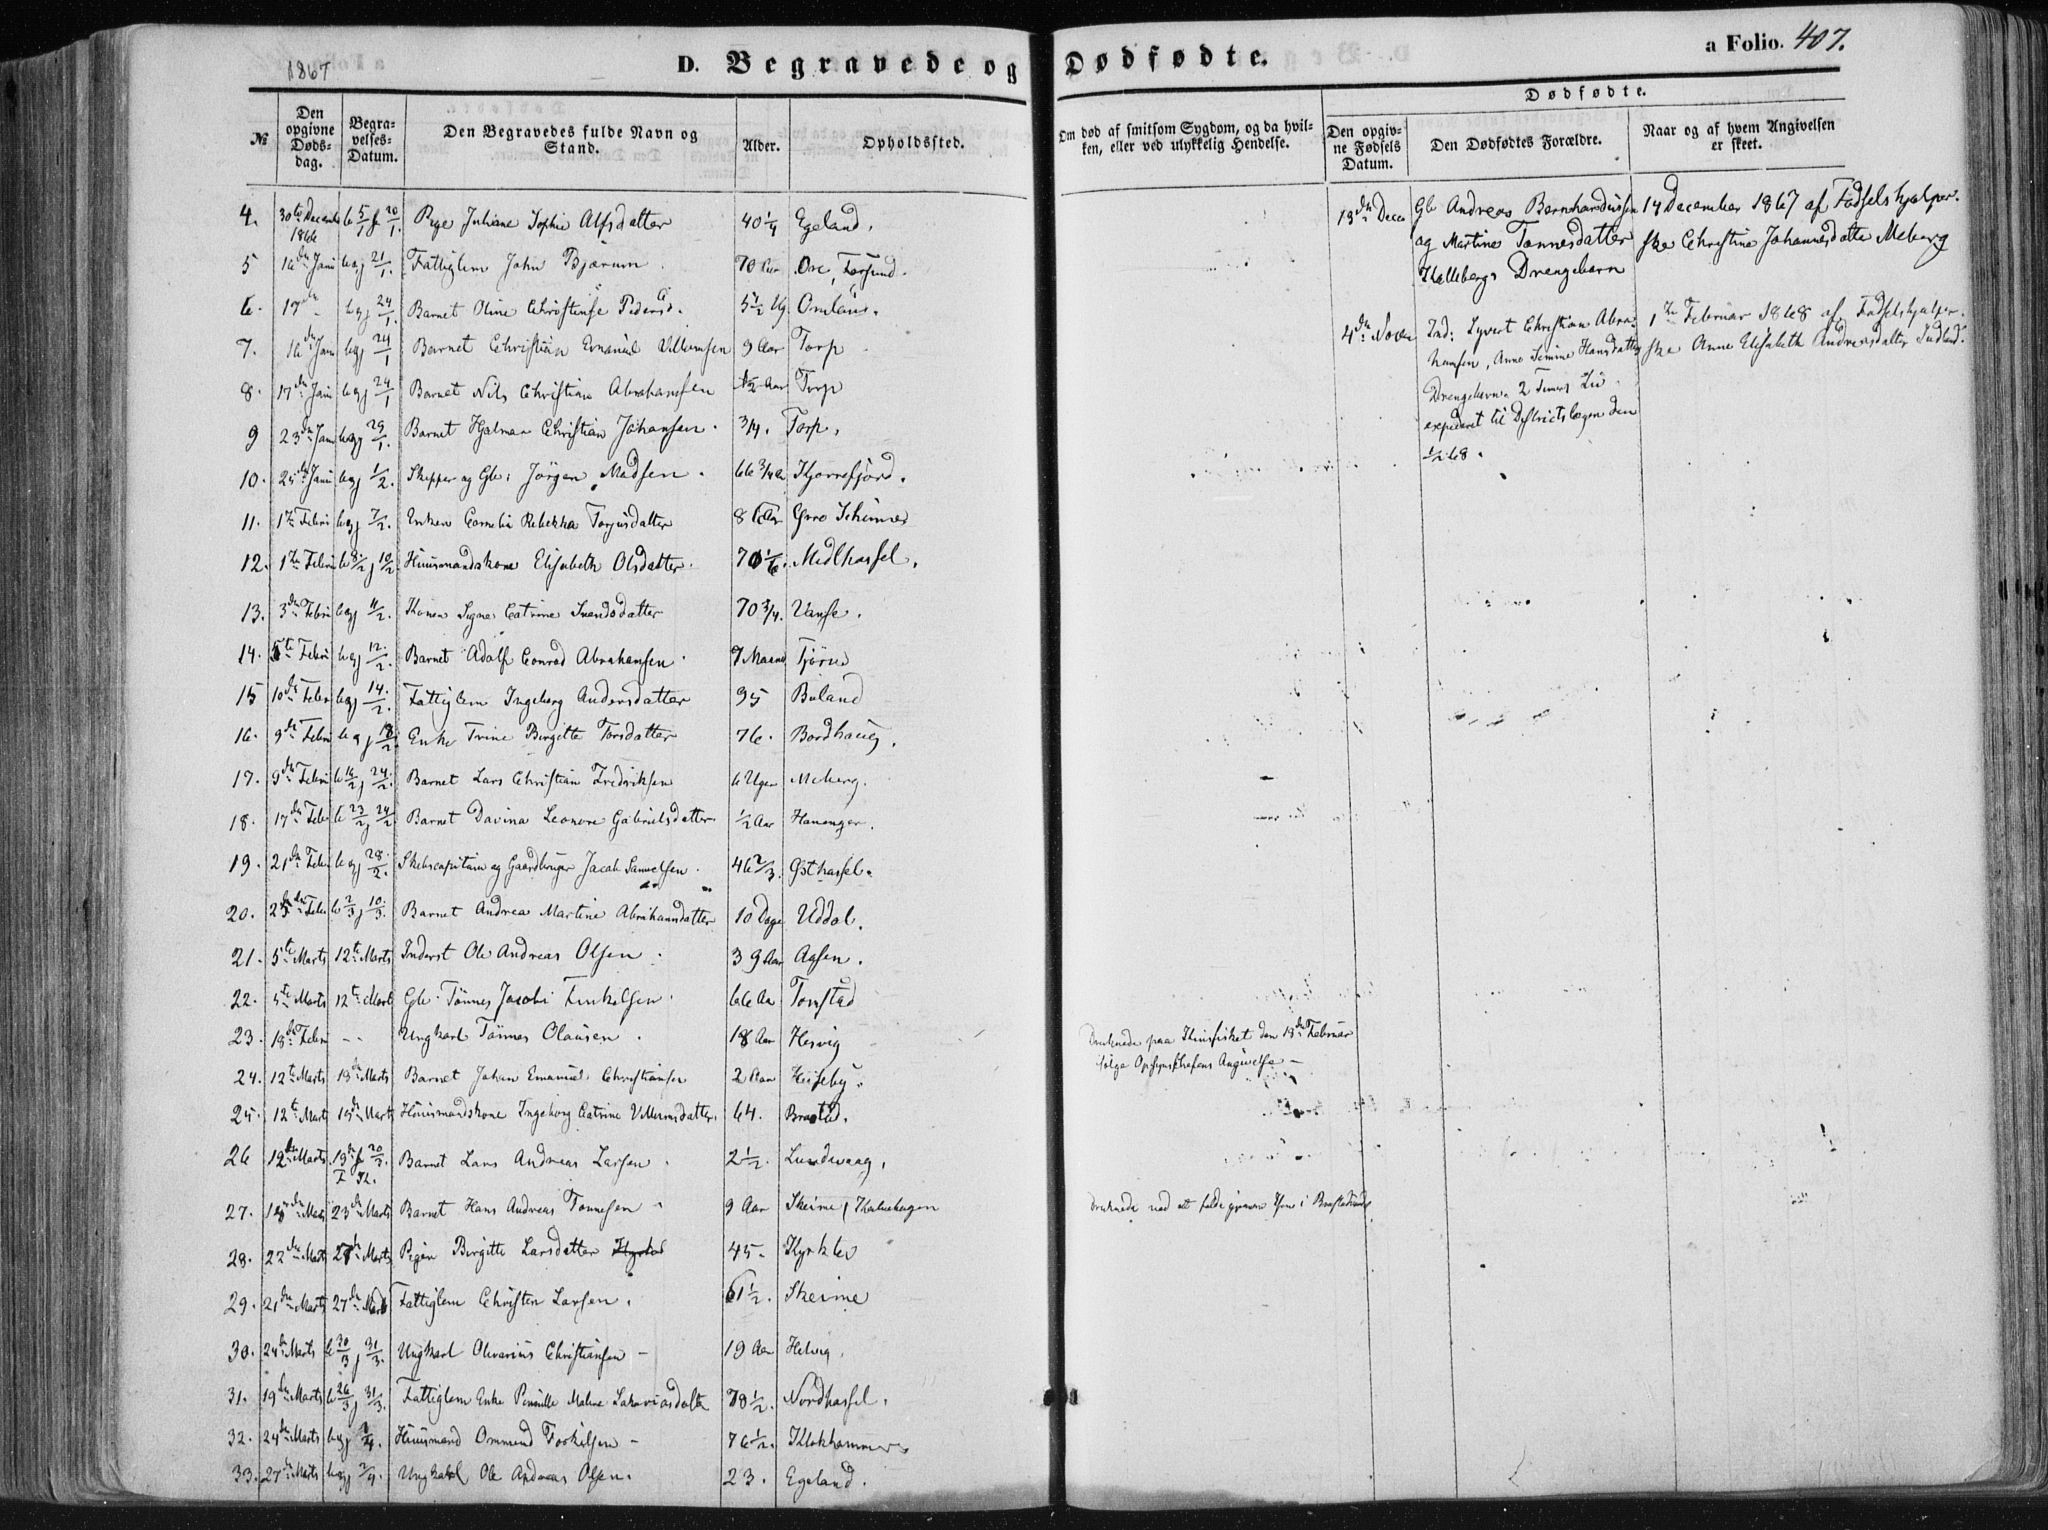 1867
D. Begravede og Dødfødte.
a Folio. 407.
№ | Den opgivne Dødsdag. | Begravelses-Datum. | Den Begravedes fulde Navn og Stand. | Alder. | Opholdssted. | Om død af smitsom Sygdom, og da hvilken, eller ved ulykkelig Hendelse. | Dødfødte. Den opgivne Fødsels Datum. | Den Dødfødtes Forældre. | Naar og af hvem Angivelsen er skeet.
4. 30te Decemb 1866 b 5/1 j 20/1. Pige Juliane Sophie Alfsdatter 40 1/4 Egeland.
5 16de Janu b og j 21/1. Fattiglem John Bjærum 70 Aar Ore, Farsund.
6. 17de b og j 24/1. Barnet Oline Christense Pedersd. 5 1/2 Ug Omland.
7. 16de Janu b og j 24/1 Barnet Christian Emanuel Villumsen 9 Aar Torp
8. 17de Janu b og j 24/1 Barnet Nils Christian Abrahamsen 1/2 Aar Torp
9 23de Janu b og j 29/1. Barnet Hjalmar Christian Johansen. 3/4. Torp.
10. 25de Janu b og j 1/2. Skipper og Gb: Jörgen Madsen. 66 3/4 A Kjørrefjord.
11. 1te Febru b og j 7/2. Enken Cornelia Rebekka Torjusdatter 86 Aar Øvre Skeime
12. 1te Febru b 8/2 j 10/2 Huusmandskone Elisabeth Olsdatter. 70 1/6. Midthassel.
13. 3die Febru b og j 11/2. Konen Signe Catrine Svendsdatter 70 3/4. Vanse.
14. 5te Febru b og j 12/2. Barnet Adolf Conrad Abrahamsen. 7 Maan Tjörve
15 10de Febru b og j 14/2. Fattiglem Ingeborg Andersdatter 95 Buland
16. 9de Febru b og j 18/2 Enke Trine Birgitte Torsdatter 76. Bordhaug.
17. 9de Febru b 16/2 j 24/2. Barnet Lars Christian Fredriksen 6 Uger Meberg.
18. 17de Febr b 23/2 j 24/2 Barnet Davina Leonore Gabrielsdatter 1/2 Aar Hananger.
19. 21de Febru b og j 28/2. Skibscapitain og Gaardbruger Jacob Samuelsen. 46 2/3. Østhassel.
20. 23de Febr b 2/3 j 10/3. Barnet Andrea Martine Abrahamsdatter 10 Dage Uddal.
21. 5te Marts 12te Marts Inderst Ole Andreas Olsen. 39 Aar Aasen.
22. 5te Marts 12te Marts Gb. Tönnes Jacobi Terkelsen. 66 Aa Tomstad
23. 18de Febru -- Ungkarl Tönnes Olausen. 18 Aar Hesvig Druknede paa Skinfisket den 18de Februar
ifølge Opsynschefens Angivelse —
24. 12te Marts 18de Marts Barnet Johan Emanuel Christiansen 2 Aar Huseby.
25. 12te Marts 15de Marts Huusmandskone Ingeborg Catrine Villumsdatter 64. Brastad.
26 12te Marts 19de j 20/3. Barnet Lars Andreas Larsen. 2 1/2. Lundevaag.
27. 18de Marts 23de Marts Barnet Hans Andreas Tønnesen 9 Aar Skeime Druknede ved at falde gjennem Isen i
28. 22de Marts 27de Marts Pigen Birgitte Larsdatter 45. Kjørklev
29. 21de Marts 27de Marts Fattiglem Christen Larsen. 61 1/2. Skeime
30. 24de Marts b 30/3 j 31/3. Ungkarl Olivarius Christiansen – 19 Aar Helvig.
31. 19de Marts b 26/3 j 31/3. Fattiglem Enke Pernille Malene Sakariasdatter 78 1/2. Nordhassel.
32. 24de Marts b og j 1/4. Huusmand Ommund Torkilsen – 76 1/2. Klokhammer
33. 27de Marts b og j 2/4. Ungkarl Ole Andreas Olsen. 23. Egeland.
13de Decem Gb Andreas Bernhardussen 14 December 1867 af Fødselshjelper-
og Martine Tønnesdatter ske Christine Johannesdatter Meberg
Kalleberg. Drengebarn
4de Novem Ind: Syvert Christian Abra- 1te Februar 1868 af Fødselshjelper-
hamsen, Anne Semine Hansdatter ske Anne Elisabeth Andreasdatter Indland.
Drengebarn. 2 Timers Liv.
expederet til Districtslægen den
1/2 68.